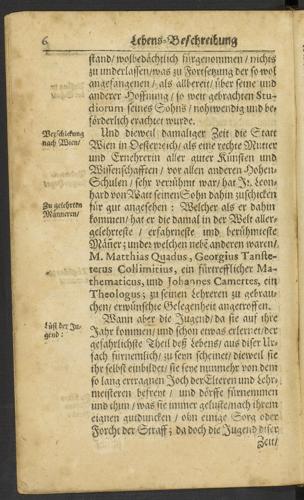 6 Lebens-Beschreibung
stand/ wolbedächtlich fürgenommen/ nichts
zu underlassen/ was zu Fortsetzung der so wol
angefangenen/ als allbereit/ über seine und
anderer Hoffnung/ so weit gebrachten Stu-
diorum seines Sohns/ nohtwendig und be-
förderlich erachtet wurde.
Verschickung
nach Wien/
Und dieweil damaliger Zeit die Statt
Wien in Oesterreich/ als eine rechte Mutter
und Ernehrerin aller guter Künsten und
Wissenschafften/ vor allen anderen Hohen-
Schulen/ sehr verrühmt war/ hat Jr. Leon-
hard von Watt seinen Sohn dahin zuschicken
Zu gelehrten
Männeren/
für gut angesehen: Welcher als er dahin
kommen/ hat er die damal in der Welt aller-
gelehrteste/ erfahrneste und berühmteste
Mäñer; under welchen nebẽ anderen waren/
M. Matthias Quadus, Georgius Tanste-
terus Collimitius, ein fürtrefflicher Ma-
thematicus, und Johannes Camertes, ein
Theologus; zu seinen Lehreren zu gebrau-
chen/ erwünschte Gelegenheit angetroffen.
Lüst der Ju-
gend:
Wann aber die Jugend/ da sie auf ihre
Jahr kommen/ und schon etwas erlernet/ der
gefährlichste Theil deß Lebens/ aus diser Ur-
sach fürnemlich/ zu seyn scheinet/ dieweil sie
ihr selbst einbildet/ sie seye nunmehr von dem
so lang erragnen Joch der Elteren und Lehr-
meisteren befreyt/ und dörffe fürnemmen
und thun/ was sie immer geluste/ nach ihrem
eignen gutduncken/ ohn einige Sorg oder
Forcht der Straff; da doch die Jugend diser
Zeit/